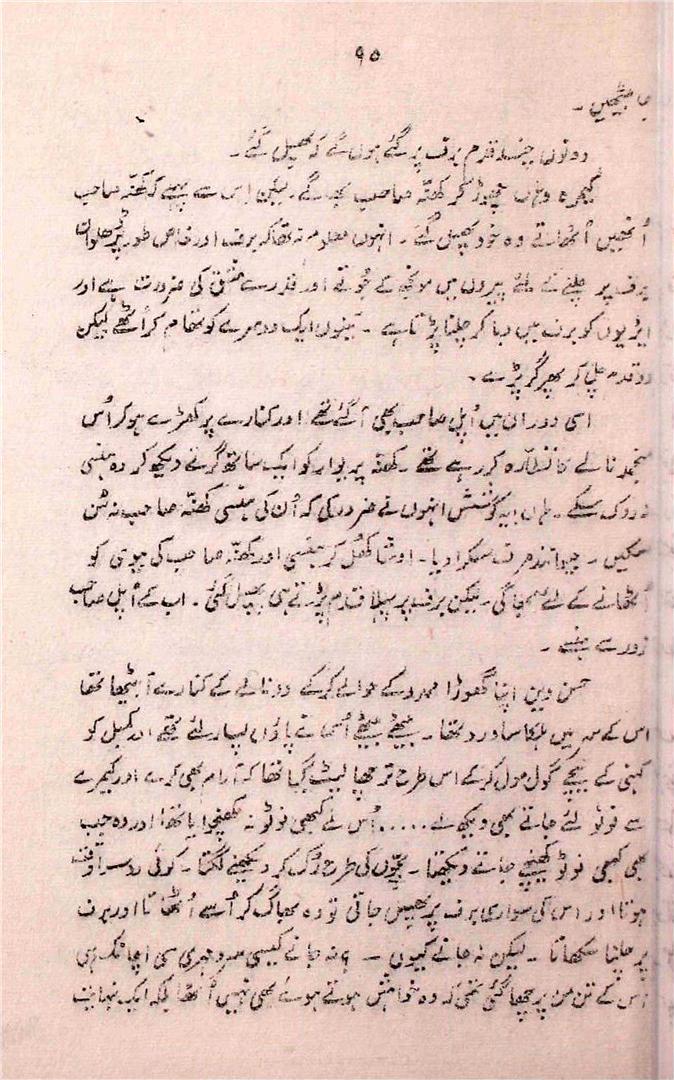 ۹۵
جا بیٹھیں۔
دونوں چند قدم برف پر گئے ہوں گے کہ پھسل گئے۔
کیمرہ وہاں چھوڑ کر کھنّہ صاحب بھاگے۔ لیکن اس سے پہلے کہ کھنّہ صاحب
اُنھیں اُٹھاتے وہ خود پھسل گئے۔ انہیں معلوم نہ تھا کہ برف اور خاص طور پر ڈھلوان
برف پر چلنے کے لئے پیروں میں مونجھ کے جُوتے اور قدرے مشق کی ضرورت ہے اور
ایڑیوں کو برف میں دبا کر چلنا پڑتا ہے۔ تینوں ایک دوسرے کو تھام کر اُٹھے لیکن
دو قدم چل کر پھر گر پڑے۔
اسی دوران میں اُپل صاحب بھی آ گئے تھے اور کنارے پر کھڑے ہو کر اُس
منجمد نالے کا نظارہ کر رہے تھے۔ کھنّہ پریوار کو ایک ساتھ گرتے دیکھ کر وہ ہنسی
نہ روک سکے۔ ہاں یہ کوشش انہوں نے ضرور کی کہ اُن کی ہنسی کھنّہ صاحب نہ سُن
سکیں۔ جیوانند صرف مسکرا دیا۔ اوشا کھُل کر ہنسی اور کھنّہ صاحب کی بیوی کو
اُٹھانے کے لئے بھاگی۔ لیکن برف پر پہلا قدم پڑتے ہی پھسل گئی۔ اب کے اُپل صاحب
زور سے ہنسے۔
حسن دین اپنا گھوڑا ممدو کے حوالے کر کے نالے کے کنارے آ بیٹھا تھا
اس کے سر میں ہلکا سا درد تھا۔ بیٹھے بیٹھے اُس نے پاؤں پسار لئے تھے اور کمبل کو
کہنی کے نیچے گول مول کر کے اس طرح ترچھا لیٹ گیا تھا کہ آرام بھی کرے اور کیمرے
سے فوٹو لئے جاتے بھی دیکھ لے..... اُس نے کبھی فوٹو نہ کھنچوایا تھا اور وہ جب
بھی کبھی فوٹو کھینچے جاتے دیکھتا۔ بچّوں کی طرح رُک کر دیکھنے لگتا۔ کوئی دوسرا وقت
ہوتا اور اس کی سواری برف پر پھسل جاتی تو وہ بھاگ کر اُسے اُٹھاتا اور برف
پر چلنا سکھاتا۔ لیکن نہ جانے کیوں۔ نہ جانے کیسی سرد مہری سی اچانک ہی
اس کے تن من پر چھا گئی تھی کہ وہ خواہش ہوتے ہوئے بھی نہیں اُٹھا بلکہ ایک نہایت